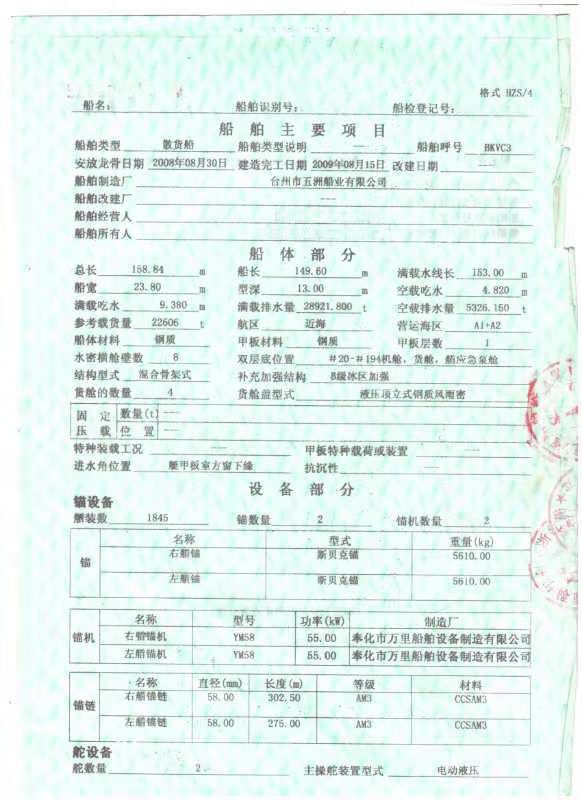 格式 HZS/4
船名： 船舶识别号： 船检登记号：
船舶主要项目
船舶类型 散货船 船舶类型说明 —— 船舶呼号 BKVC3
安放龙骨日期 2008年08月30日 建造完工日期 2009年08月15日 改建日期 ——
船舶制造厂 台州市五洲船业有限公司
船舶改建厂 ——
船舶经营人
船舶所有人
船体部分
总长 158.84 m 船长 149.60 m 满载水线长 153.00 m
船宽 23.80 m 型深 13.00 m 空载吃水 4.820 m
满载吃水 9.380 m 满载排水量 28921.800 t 空载排水量 5326.150 t
参考载货量 22606 t 航区 近海 营运海区 A1+A2
船体材料 钢质 甲板材料 钢质 甲板层数 1
水密横舱壁数 8 双层底位置 #20-#194机舱，货舱，艏应急泵舱
结构型式 混合骨架式 补充加强结构 B级冰区加强
货舱的数量 4 货舱盖型式 液压顶立式钢质风雨密
固定压载 数量(t) ——
位置 ——
特种装载工况 —— 甲板特种载荷或装置 ——
进水角位置 艇甲板室方窗下缘 抗沉性 ——
设备部分
锚设备
舾装数 1845 锚数量 2 锚机数量 2
锚 名称 型式 重量(kg)
右艏锚 斯贝克锚 5610.00
左艏锚 斯贝克锚 5610.00
锚机 名称 型号 功率(kW) 制造厂
右艏锚机 YM58 55.00 奉化市万里船舶设备制造有限公司
左艏锚机 YM58 55.00 奉化市万里船舶设备制造有限公司
锚链 名称 直径(mm) 长度(m) 等级 材料
右艏锚链 58.00 302.50 AM3 CCSAM3
左艏锚链 58.00 275.00 AM3 CCSAM3
舵设备
舵数量 2 主操舵装置型式 电动液压